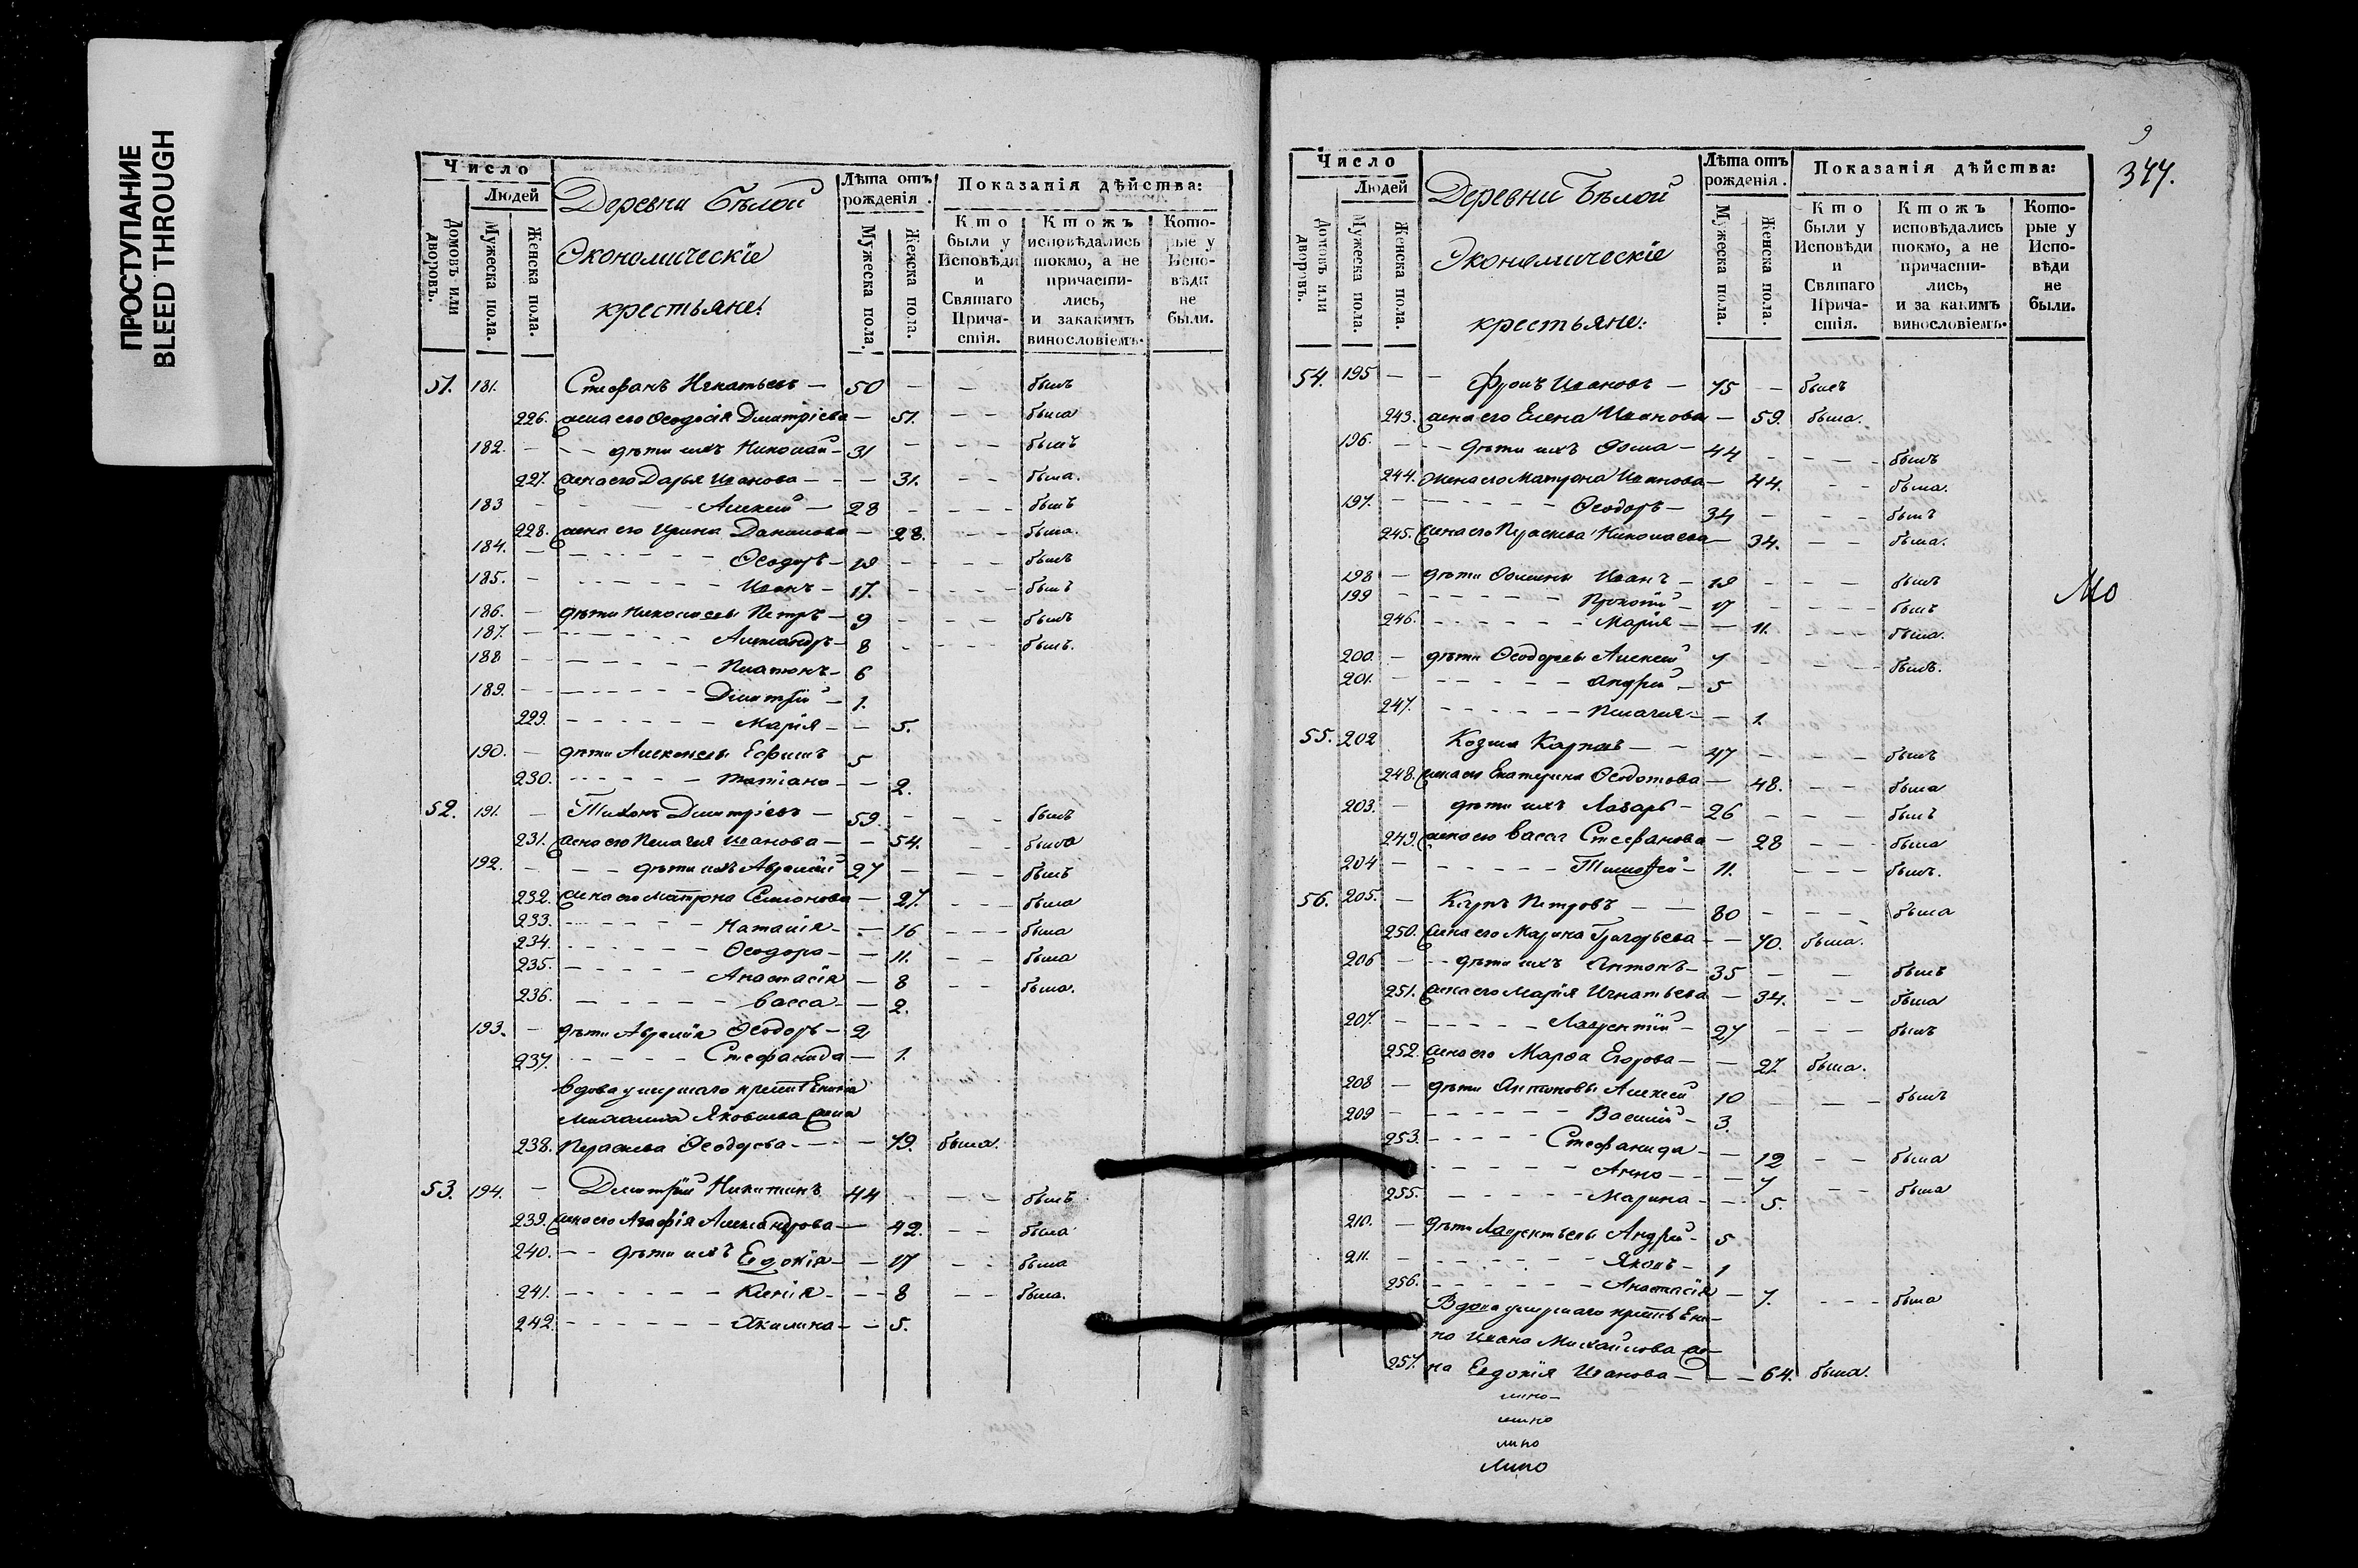 ПРОСТУПАНИЕ
BLEED THROUGH
Число
Людей
Домовъ или дворовъ.
Мужеска пола.
Женска пола.
Деревни Бѣлой
Экономическіе
крестьяне:
Лѣта отъ рожденія.
Мужеска пола.
Женска пола.
Показанія дѣйства:
Кто были у Исповѣди и Святаго Причастія.
Ктожъ исповѣдались токмо, а не причастились, и закакимъ винословіемъ.
Которые у Исповѣди не были.
51. 181. Стефанъ Игнатьевъ — 50 - - былъ
226. жена его Ѳеодосія Димитріева — 51. - - была
182. - - дѣти ихъ Николай - 31 - - - былъ
227. жена его Дарья Иванова - - - 31. - - была.
183 - - - Алексей - 28 - - - былъ
228. жена его Ирина Данилова - 28. - - была.
184. - - - Ѳеодоръ - 19 - - - былъ
185. - - - Иванъ - 17. - - - былъ
186. - дѣти Николаевы Петръ - 9 - - - былъ
187. - - - Александръ - 8 - - - былъ.
188 - - - Платонъ - 6
189. - - - Димитрій - 1.
229. - - - Марія - - 5.
190. - дѣти Алексеевы Ефимъ 5
230. - - - Татіана - - 2.
52. 191. - Тихонъ Димитріевъ — 59. - - - былъ
231. жена его Пелагія Иванова - - 54. - - была
192. - - - дѣти ихъ Авраамій 27 - - - былъ
232. жена его Матрона Семионова - 27. - - была
233. - - - Наталія - - 16 - - - была
234. - - - Ѳеодора - - 11. - - была
235. - - - Анастасія - 8 - - была.
236. - - - Васса - - 2.
193. - дѣти Авраамія Ѳеодоръ - 2
237. - - - Стефанида - 1.
Вдова умершаго
Михаила Яковлева жена
238. Параскева Ѳеодорова - - - 79. была.
53. 194. - Димитрій Никитинъ 44 - - - былъ
239. жена его Агафія Александрова - 42. - - была
240. - - дѣти ихъ Евдокія - - 17 - - была
241. - - - Ксенія - - - 8 - - была.
242. - - - Акилина - - 5.
9
344.
Число
Людей
Домовъ или дворовъ.
Мужеска пола.
Женска пола.
Деревни Бѣлой
Экономическіе
крестьяне:
Лѣта отъ рожденія.
Мужеска пола.
Женска пола.
Показанія дѣйства:
Кто были у Исповѣди и Святаго Причастія.
Ктожъ исповѣдались токмо, а не причастились, и за какимъ винословіемъ.
Которые у Исповѣди не были.
54. 195 - - Фролъ Ивановъ - 75 - - былъ
243. жена его Елена Иванова - 59. была.
196. - - дѣти ихъ Ѳома - 44 - - - былъ
244. жена его Матрона Иванова - 44. - - была.
197. - - - Ѳеодоръ - 34 - - - былъ
245. жена его Параскева Николаева - 34. - - была.
198 - дѣти Ѳомины Иванъ - 19 - - - былъ
199 - - - Прокопій - 17 - - - былъ
246. - - - Марія - - 11. - - - была.
200. - дѣти Ѳеодоровы Алексей 7 - - - былъ.
201. - - - Андрей - 5
247. - - - Пелагія - - 1.
55. 202 Козма Карповъ - - 47 - - - былъ
248. жена его Екатерина Ѳеодотова - 48. - - была
203. - дѣти ихъ Лазарь - 26 - - - былъ
249. жена его Васса Стефанова - 28 - - - была
204 - - - Тимоѳей - 11. - - - былъ.
56. 205. - Карпъ Петровъ - - 80 - - - была
250. жена его Марина Григорьева - - 70. была.
206 - - - дѣти ихъ Антонъ - 35 - - былъ
251. жена его Марія Игнатьева - 34. - - была
207. - - - Лаврентій - 27 - - - былъ
252. жена его Марѳа Егорова - - 27. была.
208 - дѣти Антоновы Алексей 10 - - - былъ
209 - - - Василій - 3.
253. - - - Стефанида - - 12 - - была
- - - Анна - - - 7 - - была
255. - - - Марина - - - 5.
210. - дѣти Лаврентьевы Андрей - 5
211. - - - Яковъ - 1
256. - - - Анастасія - 7. - - - была
Вдова умершаго
Ивана Михайлова же-
257. на Евдокія Иванова - - - 64. была.